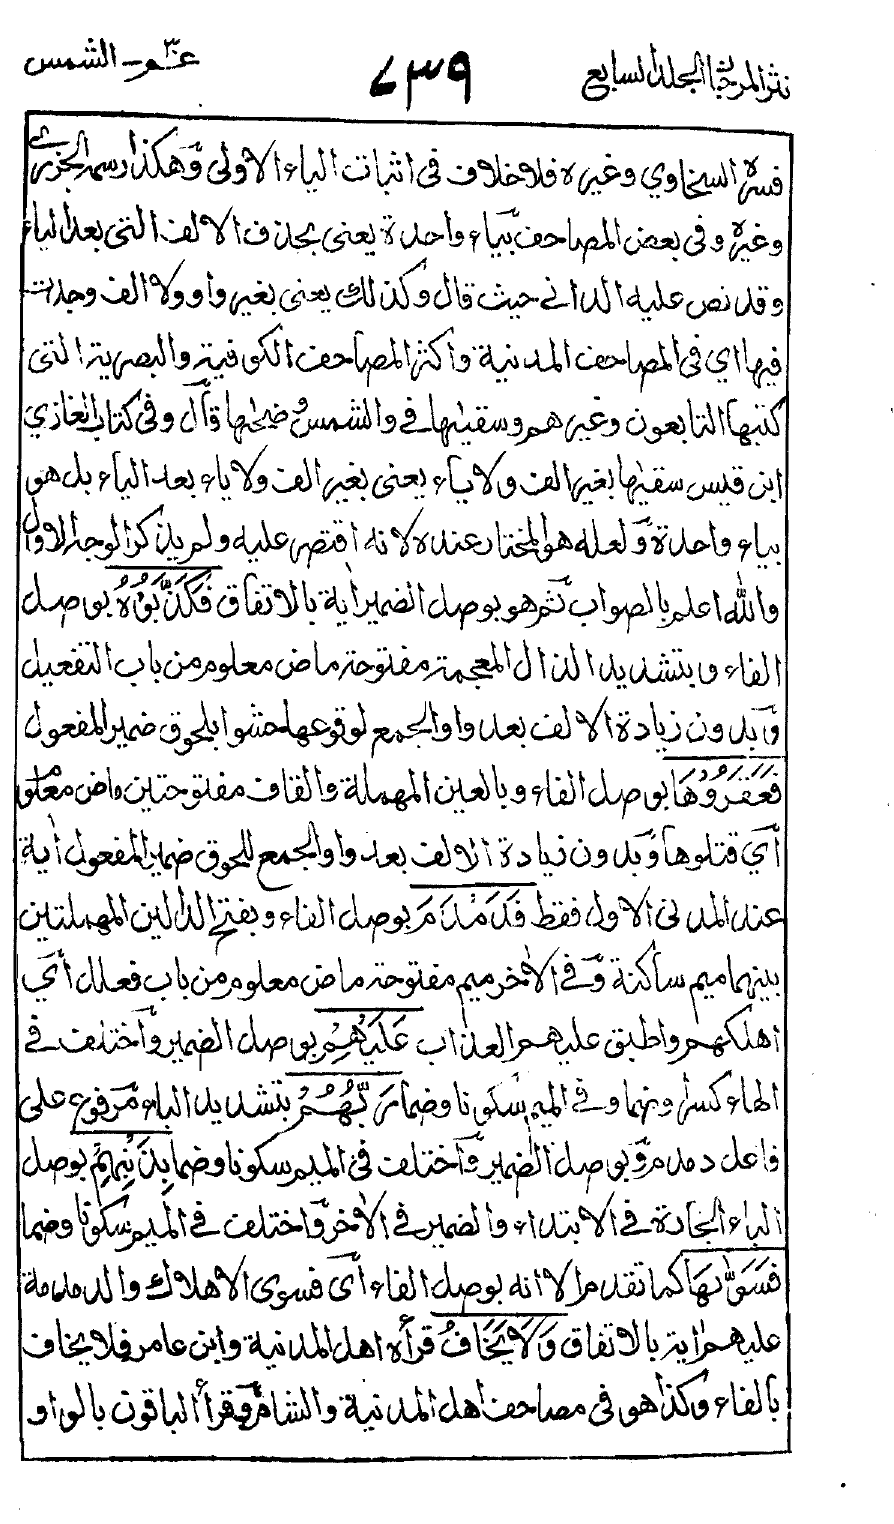 نثر المرجان المجلد السابع ٧٣٩ عمّ ٣٠ – الشمس
فسره السخاوي وغيره فلا خلاف في اثبات الياء الاولى وهكذا رسمه الجزري
وغيره وفي بعض المصاحف بياء واحدة يعنى بحذف الالف التى بعد الياء
وقد نص عليه الداني حيث قال وكذلك يعنى بغير واو ولا الف وجدت
فيها اي في المصاحف المدنية واكثر المصاحف الكوفية والبصرية التى
كتبها التابعون وغيرهم وسقيٰها في والشمس وضحٰها قال وفي كتاب الغازي
ابن قيس سقيٰها بغير الف ولا ياء يعنى بغير الف ولا ياء بعد الياء بل هو
بياء واحدة ولعله هو المختار عنده لانه اقتصر عليه ولم يذكر الوجه الاول
والله اعلم بالصواب ثم هو بوصل الضمير اية بالاتفاق فَكَذَّبُوْهُ بوصل
الفاء وبتشديد الذال المعجمة مفتوحة ماض معلوم من باب التفعيل
وبدون زيادة الالف بعد واو الجمع لوقوعها حشوا بلحوق ضمير المفعول
فَعَقَرُوْهَا بوصل الفاء وبالعين المهملة والقاف مفتوحتين ماض معلوم
أي قتلوها وبدون زيادة الالف بعد واو الجمع للحوق ضمير المفعول اية
عند المدنى الاول فقط فَدَمْدَمَ بوصل الفاء وبفتح الدالين المهملتين
بينهما ميم ساكنة وفي الاٰخر ميم مفتوحة ماض معلوم من باب فعلل أي
اهلكهم واطبق عليهم العذاب عَلَيْهِمْ بوصل الضمير واختلف في
الهاء كسرا وضما وفي الميم سكونا وضما رَبُّهُمْ بتشديد الباء مرفوع على
فاعل دمدم وبوصل الضمير واختلف في الميم سكونا وضما بِذَنْبِهِمْ بوصل
الباء الجارة في الابتداء والضمير في الاٰخر واختلف في الميم سكونا وضما
فَسَوّٰىهَا كما تقدم الا انه بوصل الفاء أى فسوى الاهلاك والدمدمة
عليهم اية بالاتفاق وَلَا يَخَافُ قرأه اهل المدنية وابن عامر فلا يخاف
بالفاء وكذا هو في مصاحف اهل المدنية والشام وقرأ الباقون بالواو